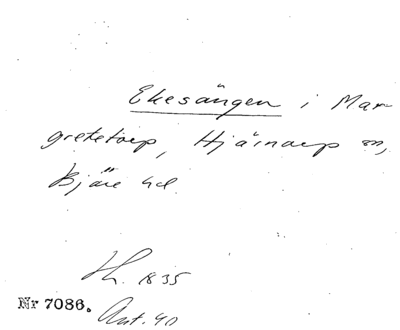 Ekesängen i Mar-
gretetorp, Hjärnarp sn,
Bjäre hd.
Lh. 1835
Nr 7086. Ant. 40